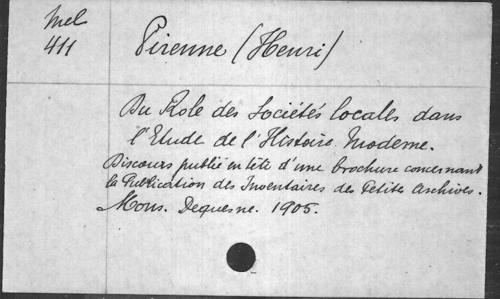 Mel
411
Pirenne (Henri)
Du Role des Sociétés locales dans
l'Etude de l'Histoire Moderne.
Discours publié en tête d'une brochure concernant
la Publication des Inventaires des Petits Archives.
Mons. Dequesne. 1905.